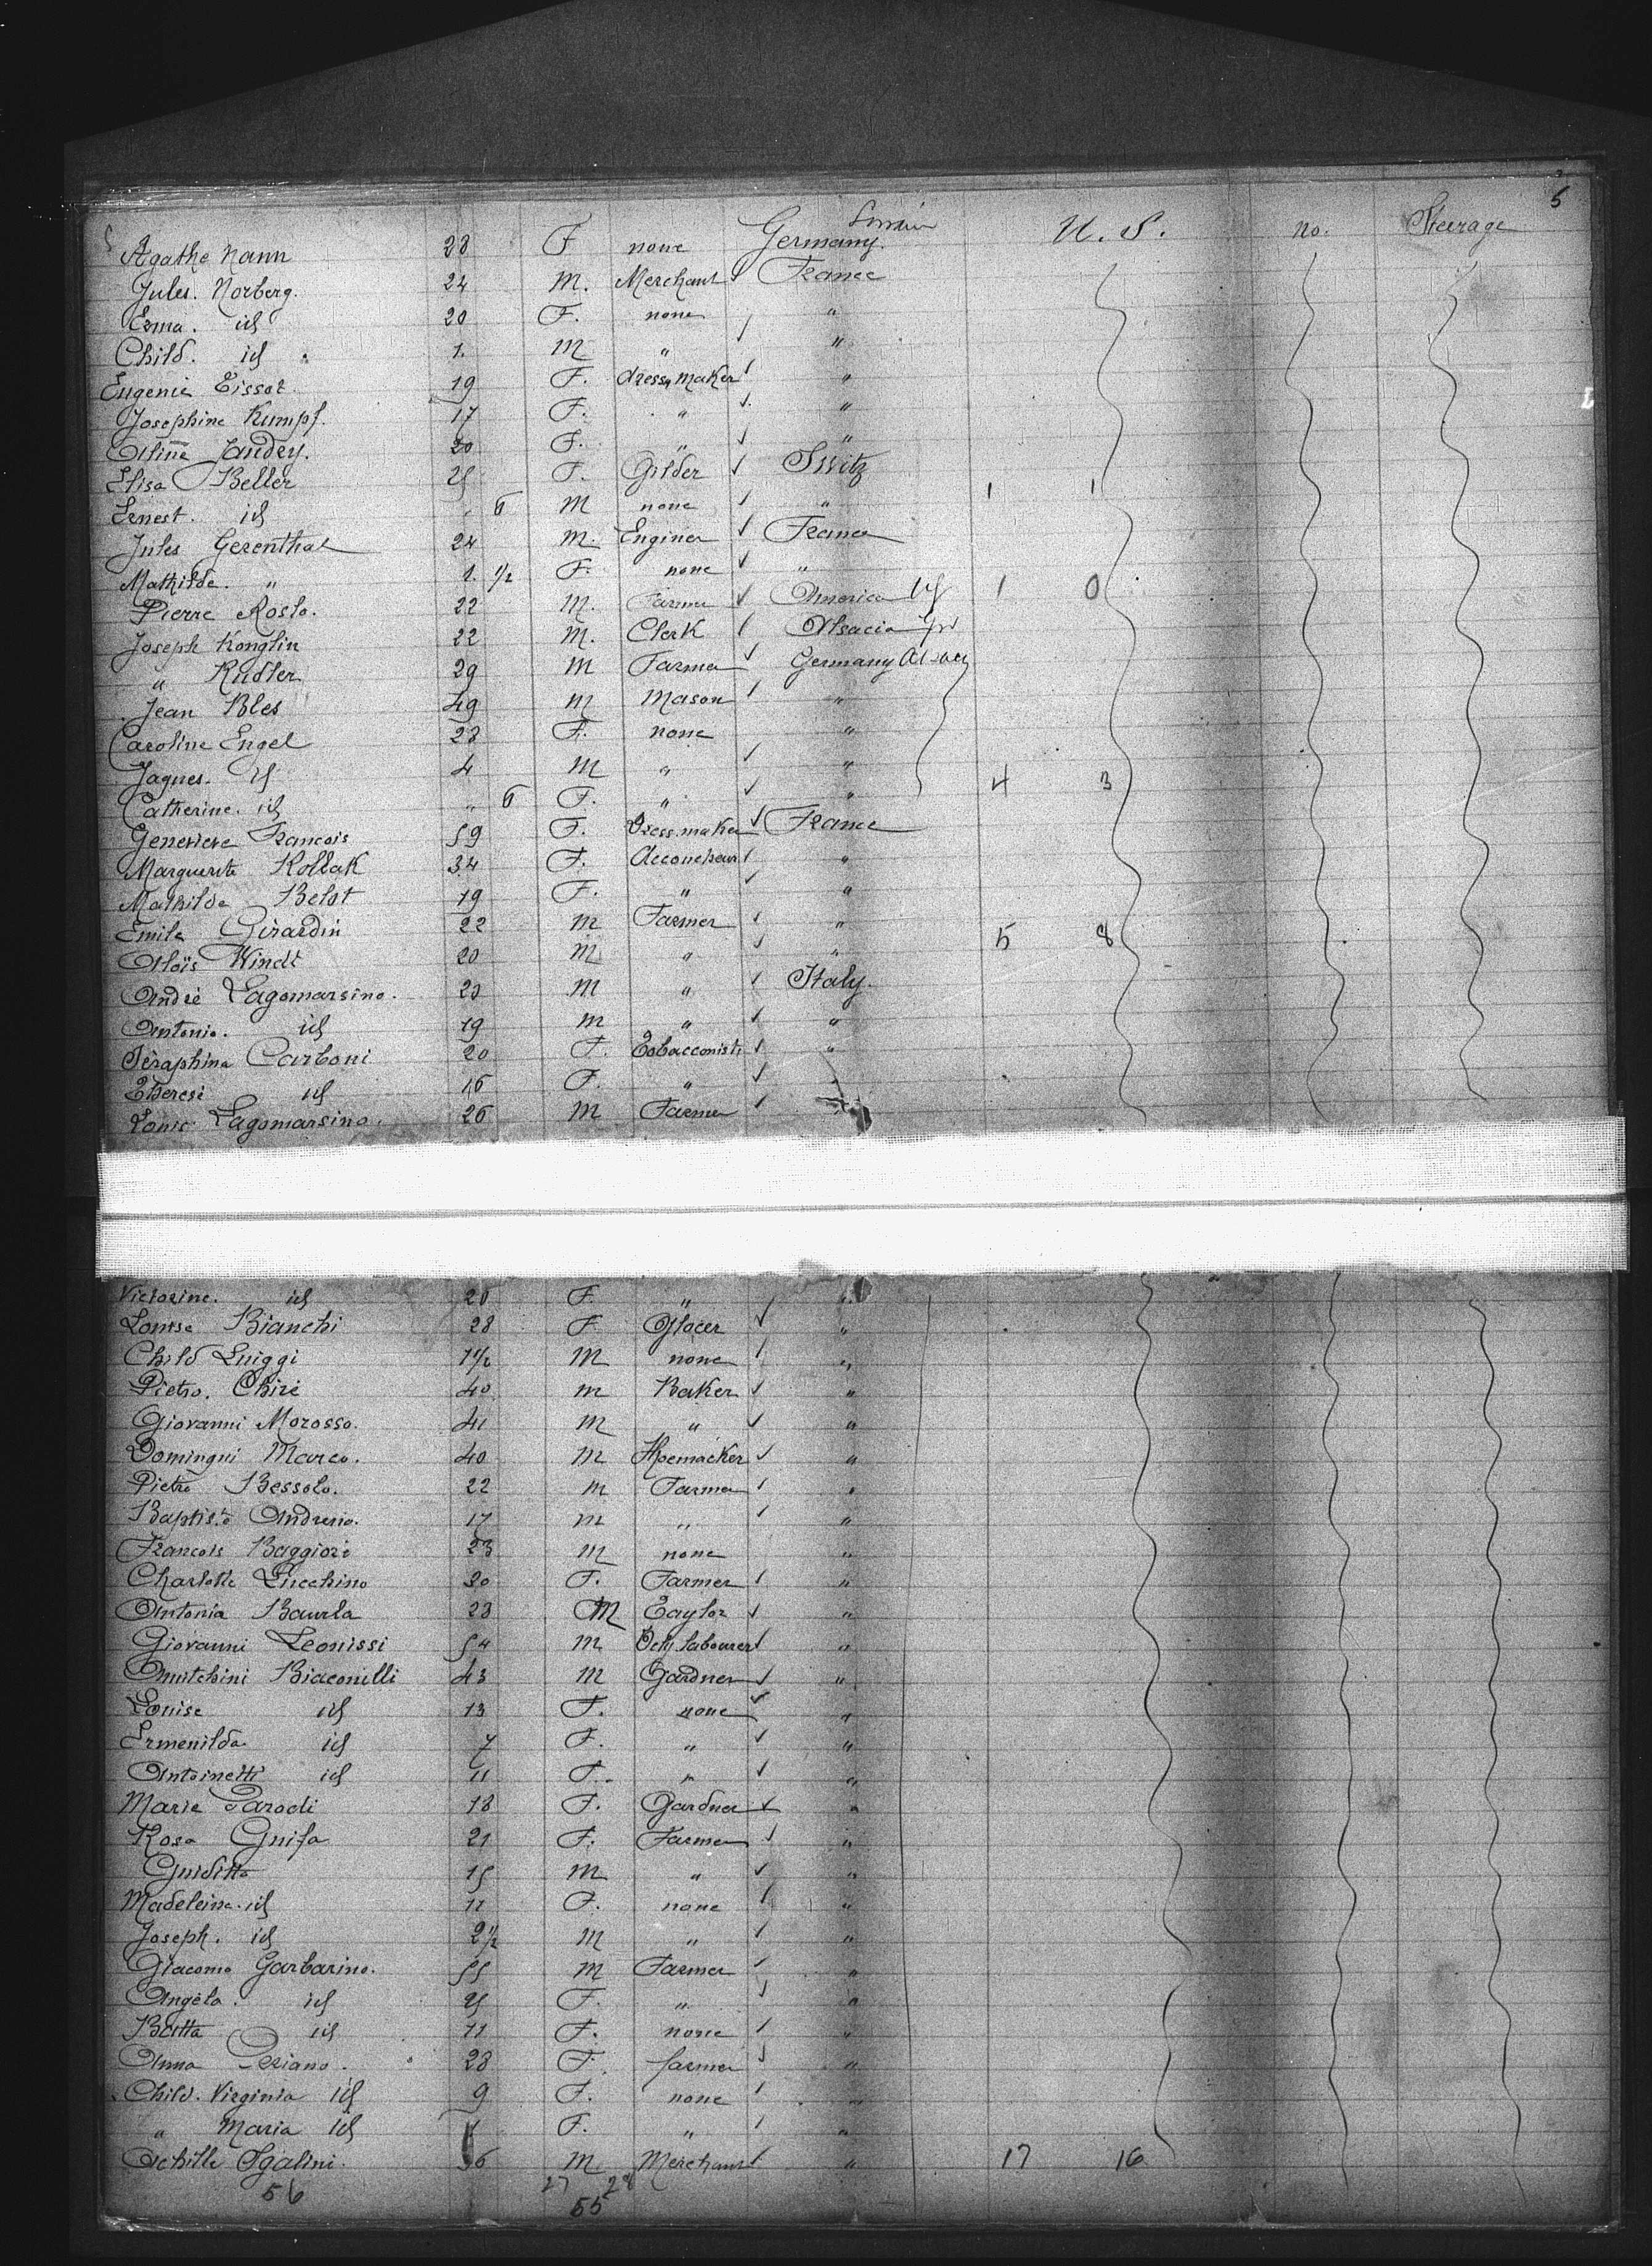 5
Agathe Nann 28 F none Germany. U. S. no. Steerage
Jules. Norberg. 24 M. Merchant France
Erma. id 20 F. none "
Child. id 1. M " "
Eugenie Tissot 19 F. dress maker "
Josephine Kumpf. 17 F. " "
Aline Jandey. 20 F. " "
Elisa Beller 25 F. Gilder Switz
Ernest. id 6 M none " 1 1
Jules Gerenthal 24 M. Enginer France
Mathilde. " 1. 1/2 F. none "
Pierre Roslo. 22 M. Farmer America US 1 0
Joseph Konglin 22 M. Clerk Alsacia
" Rudler 29 M Farmer Germany
Jean Bles 49 M Mason "
Caroline Engel 28 F. none "
Jaques. id 4 M " "
Catherine. id " 6 F. " " 4 3
Genevieve Francois 59 F. Dress.maker France
Marguerite Kollak 34 F. Accoucheur "
Mathilde Belot 19 F. " "
Emile Girardin 22 M Farmer " 5 8
Aloïs Windt 20 M " "
André Lagomarsino. 20 M " Italy.
Antonio. id 19 M " "
Séraphina Carboni 20 F. Tobacconist "
Therese id 16 F. "
Louis Lagomarsino. 26 M Farmer
Victorine. id 26 F. " "
Louise Bianchi 28 F. Glacer "
Child Luiggi 1 1/2 M none "
Pietro. Chire 40 M Baker "
Giovanni Morosso. 41 M " "
Domingui Marco. 40 M Shoemacker "
Pietro Bessolo. 22 M Farmer "
Baptiste Andrerio. 17 M " "
Francois Baggiore 23 M none "
Charlotte Lucchino 30 F. Farmer "
Antonia Baurla 28 M Taylor "
Giovanni Leonissi 54 M labourer "
Biaconelli 43 M Gardner "
Louise id 13 F. none "
Ermenilda id 7 F. " "
Antoinetti id 11 F. " "
Marie Parodi 18 F. Gardner "
Rosa Gnifa 21 F. Farmer "
Guiditta 15 M " "
Madeleina. id 11 F. none "
Joseph. id 2 1/2 M " "
Giacomo Garbarino. 55 M Farmer "
Angela. id 25 F. " "
Batta id 11 F. none "
Anna Periano. 28 F. farmer "
Child. Virginia id 9 F. none "
" Maria id F. " "
Achille Sgalini. 36 M Merchant " 17 16
56 27 28
55